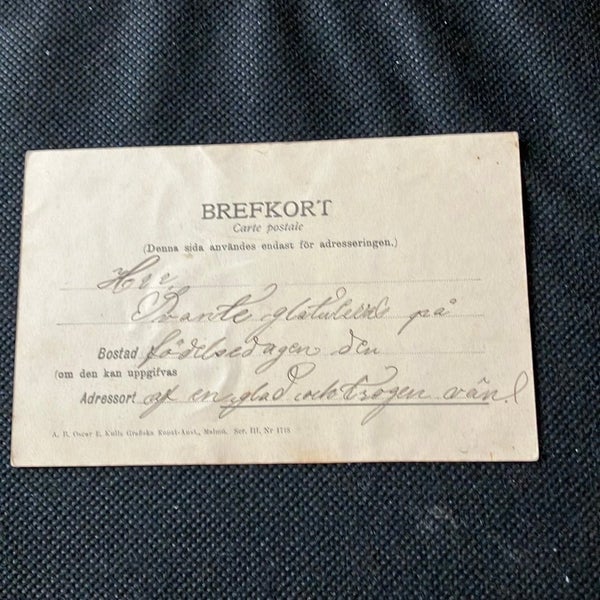 BREFKORT
Carte postale
(Denna sida användes endast för adresseringen.)
Hrr
Svante glatuleras på
Bostad födelsedagen den
(om den kan uppgifvas
Adressort af en glad och trogen vän!
A. B. Oscar E. Kulls Grafiska Konst-Anst., Malmö. Ser. III, Nr 1718